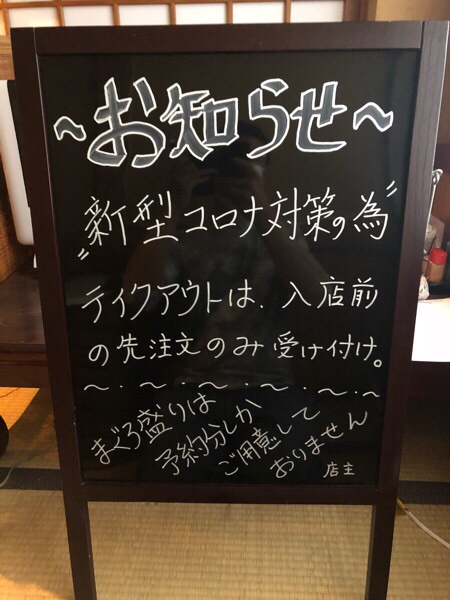 ～お知らせ～
〃新型コロナ対策の為〃
テイクアウトは、入店前
の先注文のみ受け付け。
～・～・～・～・～・～
まぐろ盛りは
予約分しか
ご用意して
おりません
店主